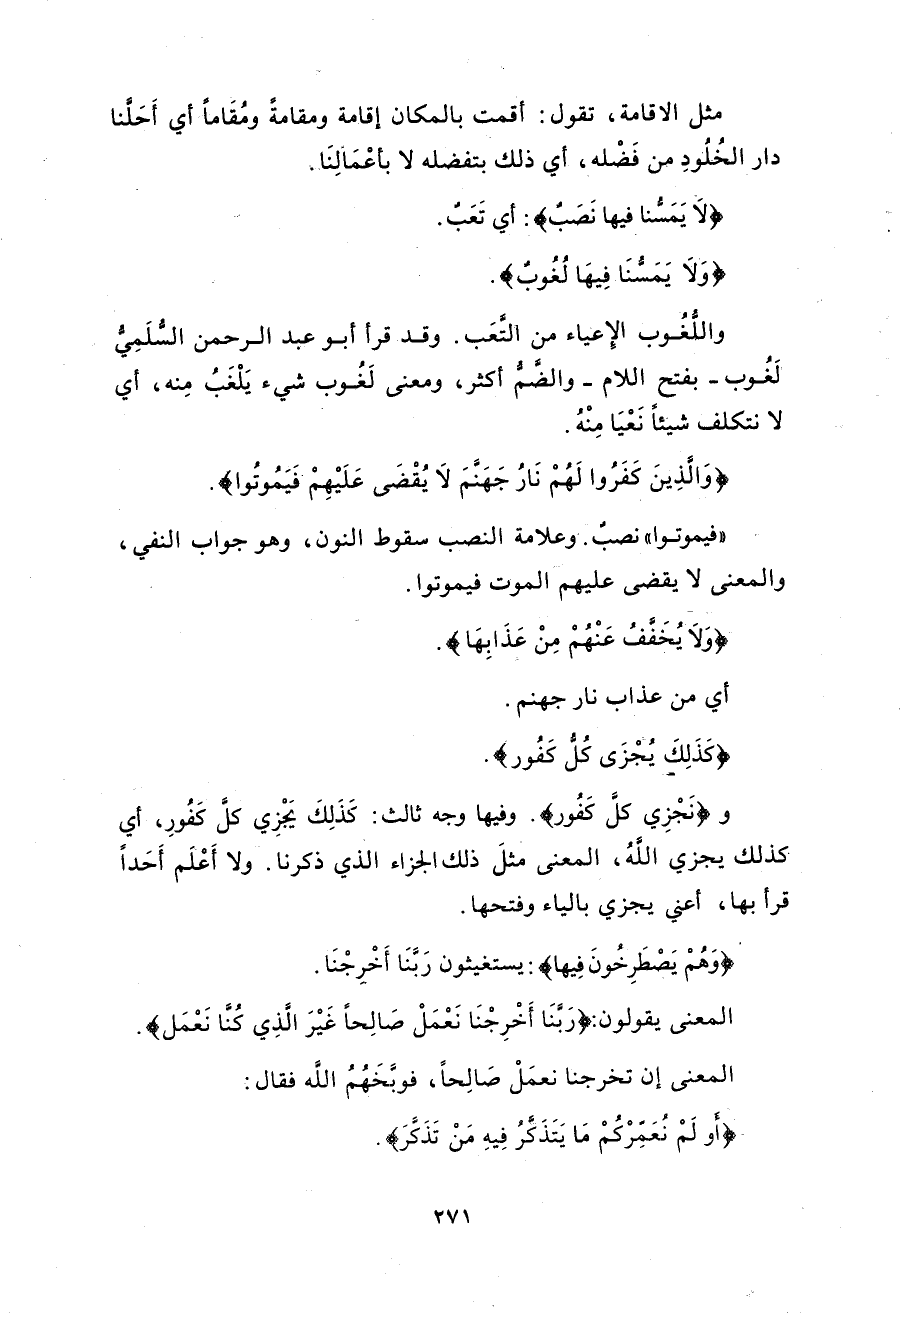 مثل الاقامة، تقول: أقمت بالمكان إقامة ومقامةً ومُقَاماً أي أَحَلَّنا
دار الخُلُودِ من فَضْله، أي ذلك بتفضله لا بأعْمَالِنَا.
﴿لَا يَمَسُّنا فيها نَصَبٌ﴾: أي تَعَبٌ.
﴿وَلَا يَمَسُّنَا فِيهَا لُغُوبٌ﴾.
واللُّغُوب الإِعياء من التَّعَب. وقد قرأ أبو عبد الرحمن السُّلَمِيُّ
لَغُوب - بفتح اللام - والضَّمُّ أكثر، ومعنى لَغُوب شيء يَلْغَبُ مِنه، أي
لا نتكلف شيئاً نَعْيَا مِنْهُ.
﴿وَالَّذِينَ كَفَرُوا لَهُمْ نَارُ جَهَنَّمَ لَا يُقْضَى عَلَيْهِمْ فَيَمُوتُوا﴾.
«فيموتوا» نصبٌ. وعلامة النصب سقوط النون، وهو جواب النفي،
والمعنى لا يقضى عليهم الموت فيموتوا.
﴿وَلَا يُخَفَّفُ عَنْهُمْ مِنْ عَذَابِهَا﴾.
أي من عذاب نار جهنم.
﴿كَذَلِكَ يُجْزَى كُلُّ كَفُور﴾.
و ﴿نَجْزِي كلَّ كَفُور﴾. وفيها وجه ثالث: كَذَلِكَ يَجْزِي كلَّ كَفُورِ، أي
كذلك يجزي اللَّهُ، المعنى مثلَ ذلك الجزاء الذي ذكرنا. ولا أَعْلَم أَحَداً
قرأ بها، أعني يجزي بالياء وفتحها.
﴿وَهُمْ يَصْطَرِخُونَ فِيها﴾: يستغيثون رَبَّنَا أَخْرِجْنَا.
المعنى يقولون: ﴿رَبَّنَا أَخْرِجْنَا نَعْمَلْ صَالِحاً غَيْرَ الَّذِي كُنَّا نَعْمَل﴾.
المعنى إن تخرجنا نعمَلْ صَالِحاً، فوبَّخَهُمُ اللَّه فقال:
﴿أَو لَمْ نُعَمِّرْكُمْ مَا يَتَذَكَّرُ فِيهِ مَنْ تَذَكَّرَ﴾.
٢٧١